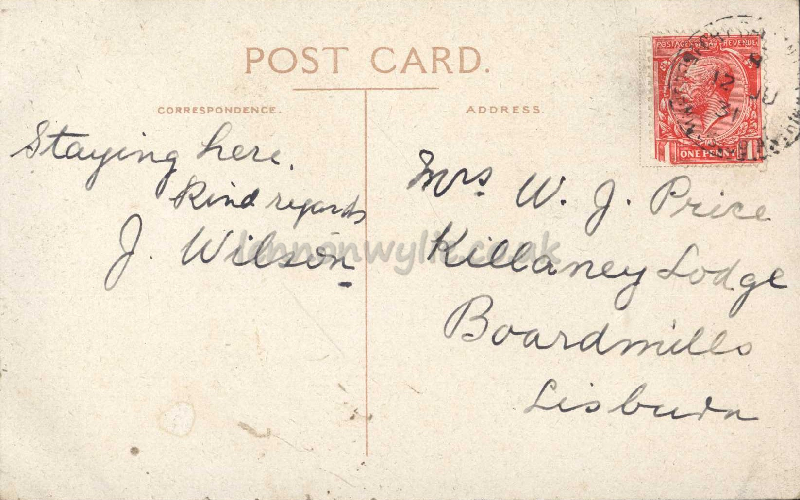 POST CARD.
CORRESPONDENCE.
ADDRESS.
POSTAGE REVENUE
ONE PENNY
12 JU
31
Staying here.
Kind regards
J. Wilson
Mrs W. J. Price
Killaney Lodge
Boardmills
Lisburn
lennonwylie.co.uk